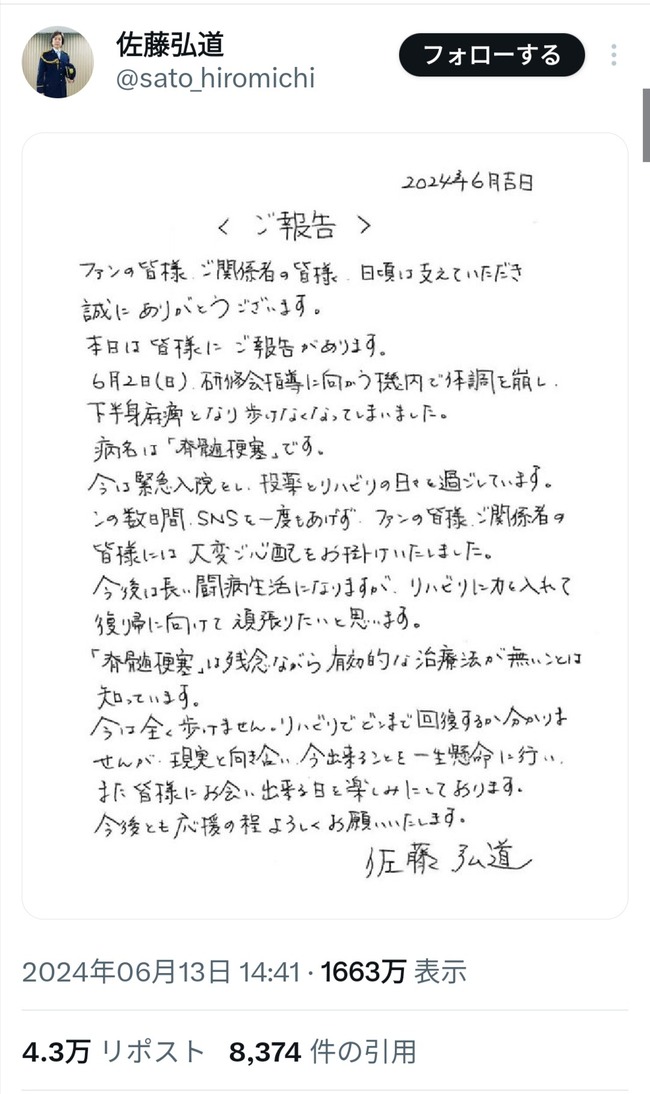 佐藤弘道
フォローする
@sato_hiromichi
2024年6月吉日
< ご報告 >
ファンの皆様、ご関係者の皆様、日頃は支えていただき
誠にありがとうございます。
本日は皆様にご報告があります。
6月2日(日)、研修会指導に向かう機内で体調を崩し、
下半身麻痺となり歩けなくなってしまいました。
病名は「脊髄梗塞」です。
今は緊急入院とし、投薬とリハビリの日々を過ごしています。
この数日間、SNSを一度もあげず、ファンの皆様、ご関係者の
皆様には大変ご心配をお掛けいたしました。
今後は長い闘病生活になりますが、リハビリに力を入れて
復帰に向けて頑張りたいと思います。
「脊髄梗塞」は残念ながら有効的な治療法が無いことは
知っています。
今は全く歩けません。リハビリでどこまで回復するか分かりま
せんが、現実と向き合い、今出来ることを一生懸命に行い、
また皆様にお会い出来る日を楽しみにしております。
今後とも応援の程よろしくお願いいたします。
佐藤弘道
2024年06月13日 14:41 · 1663万 表示
4.3万 リポスト 8,374 件の引用